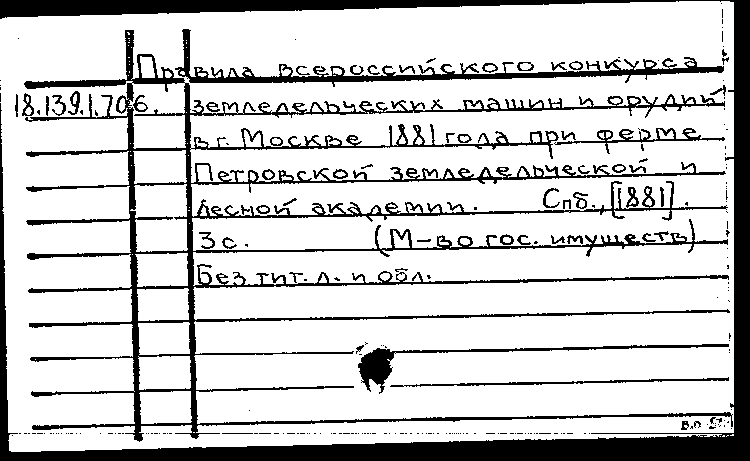 Правила всероссийского конкурса
18.139.1.706. земледельческих машин и орудий
в г. Москве 1881 года при ферме
Петровской земледельческой и
лесной академии. Спб., [1881].
3 с. (М-во гос. имуществ)
Без тит. л. и обл.
В.О